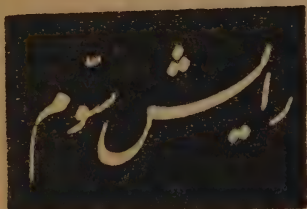 رایش سوم